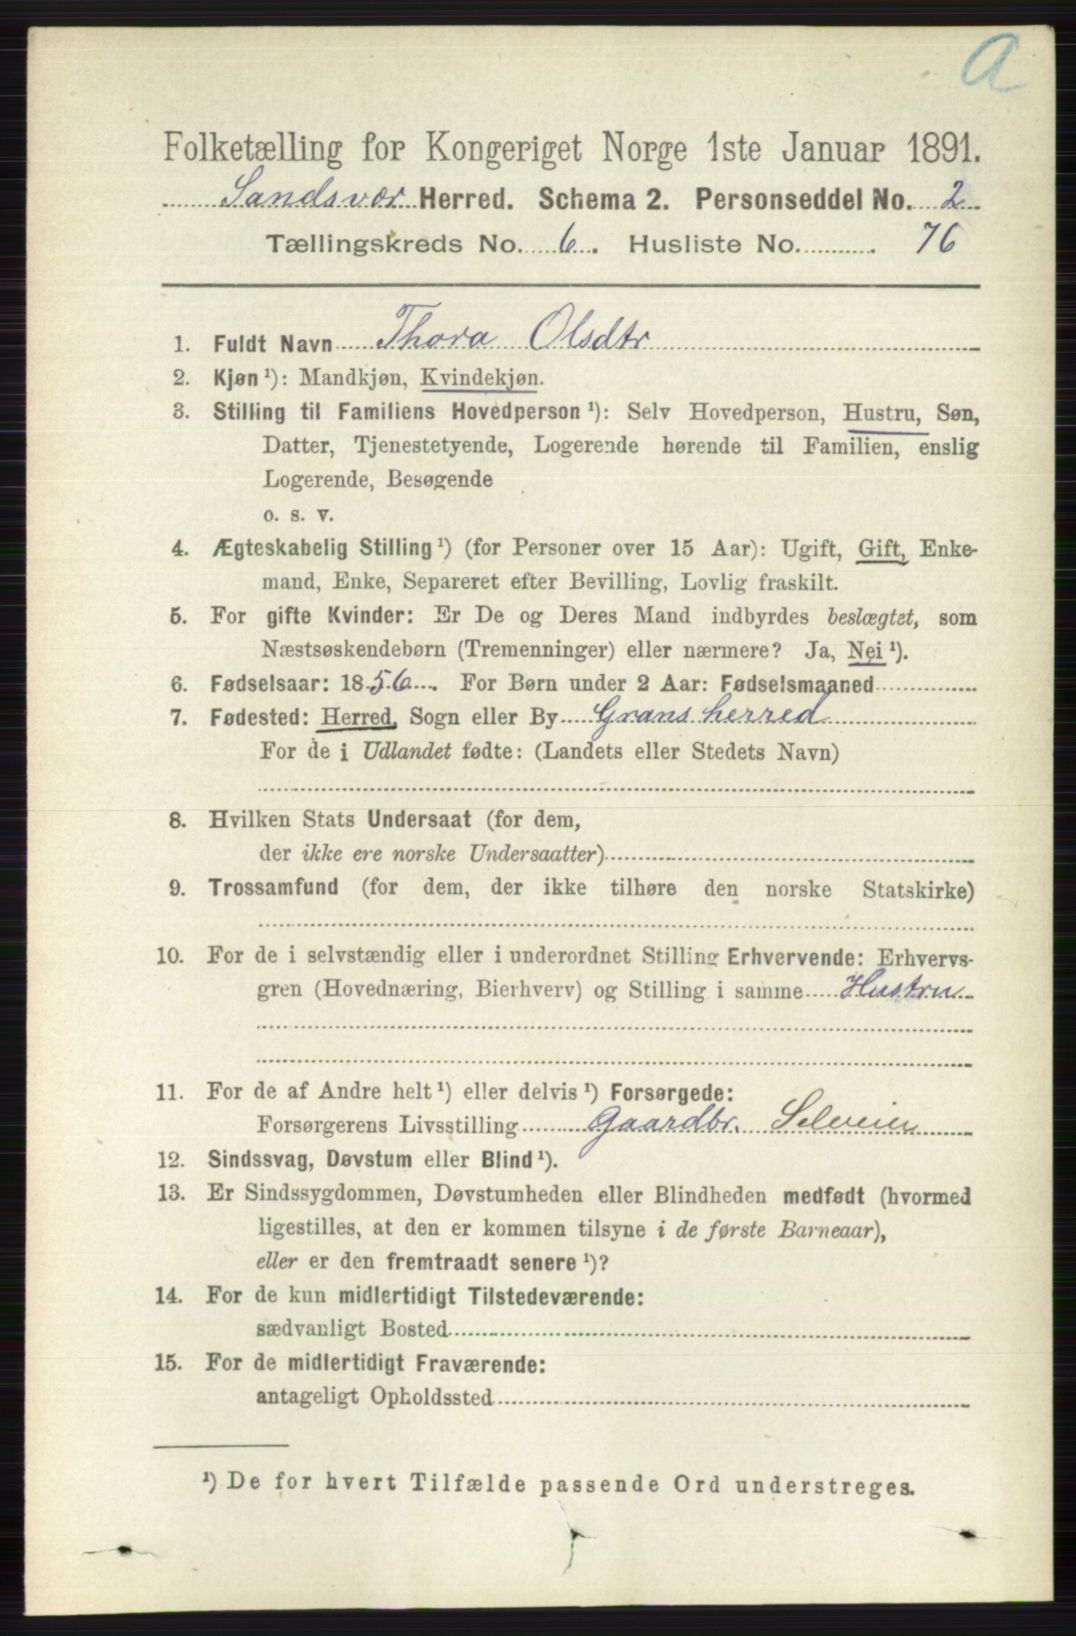 A
Folketælling for Kongeriget Norge 1ste Januar 1891.
Sandsvær Herred. Schema 2. Personseddel No. 2
Tællingskreds No. 6. Husliste No. 76
1. Fuldt Navn Thora Olsdtr
2. Kjøn ¹): Mandkjøn, Kvindekjøn.
3. Stilling til Familiens Hovedperson ¹): Selv Hovedperson, Hustru, Søn,
Datter, Tjenestetyende, Logerende hørende til Familien, enslig
Logerende, Besøgende
o. s. v.
4. Ægteskabelig Stilling ¹) (for Personer over 15 Aar): Ugift, Gift, Enke-
mand, Enke, Separeret efter Bevilling, Lovlig fraskilt.
5. For gifte Kvinder: Er De og Deres Mand indbyrdes beslægtet, som
Næstsøskendebørn (Tremenninger) eller nærmere? Ja, Nei ¹).
6. Fødselsaar: 1856. For Børn under 2 Aar: Fødselsmaaned
7. Fødested: Herred, Sogn eller By Gransherred
For de i Udlandet fødte: (Landets eller Stedets Navn)
8. Hvilken Stats Undersaat (for dem,
der ikke ere norske Undersaatter)
9. Trossamfund (for dem, der ikke tilhøre den norske Statskirke)
10. For de i selvstændig eller i underordnet Stilling Erhvervende: Erhvervs-
gren (Hovednæring, Bierhverv) og Stilling i samme Hustru
11. For de af Andre helt ¹) eller delvis ¹) Forsørgede:
Forsørgerens Livsstilling Gaardbr. Selveier
12. Sindssvag, Døvstum eller Blind ¹).
13. Er Sindssygdommen, Døvstumheden eller Blindheden medfødt (hvormed
ligestilles, at den er kommen tilsyne i de første Barneaar),
eller er den fremtraadt senere ¹)?
14. For de kun midlertidigt Tilstedeværende:
sædvanligt Bosted
15. For de midlertidigt Fraværende:
antageligt Opholdssted
¹) De for hvert Tilfælde passende Ord understreges.